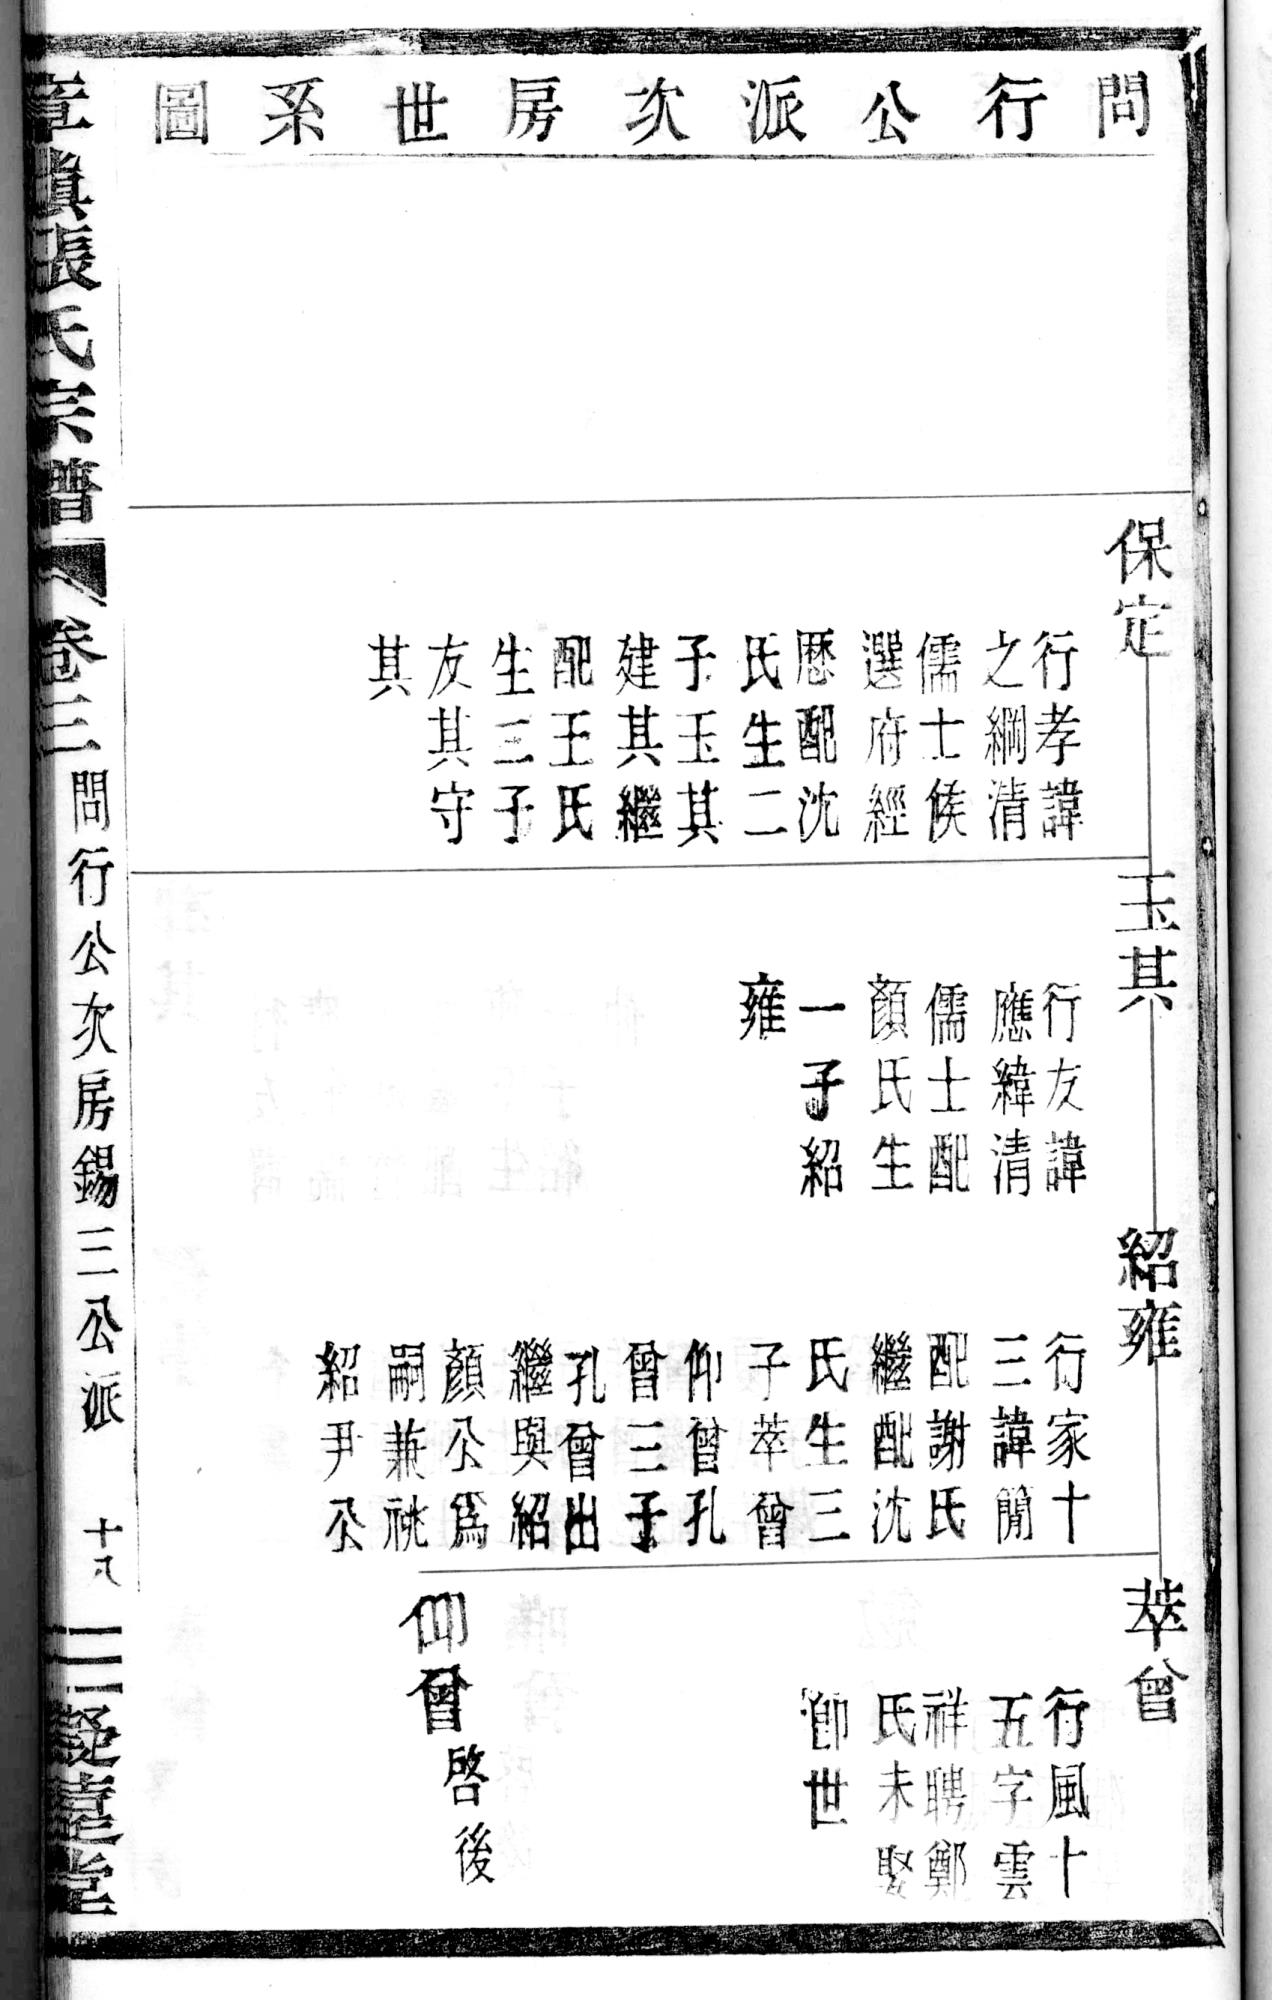 問行公派次房世系圖
保定
行孝諱
之綱清
儒士候
選府經
歷配沈
氏生二
子玉其
建其繼
配王氏
生二子
友其守
其
玉其
行友諱
應緯清
儒士配
顏氏生
一子紹
雍
紹雍
行家十
三諱簡
配謝氏
繼配沈
氏生三
子萃曾
仰曾孔
曾三子
孔曾出
繼與紹
顏公爲
嗣兼祧
紹尹公
萃曾
行風十
五字雲
祥聘鄭
氏未娶
卽世
仰曾啓後
章鎮張氏宗譜
卷三
問行公次房錫三公派
十八
三凝堂